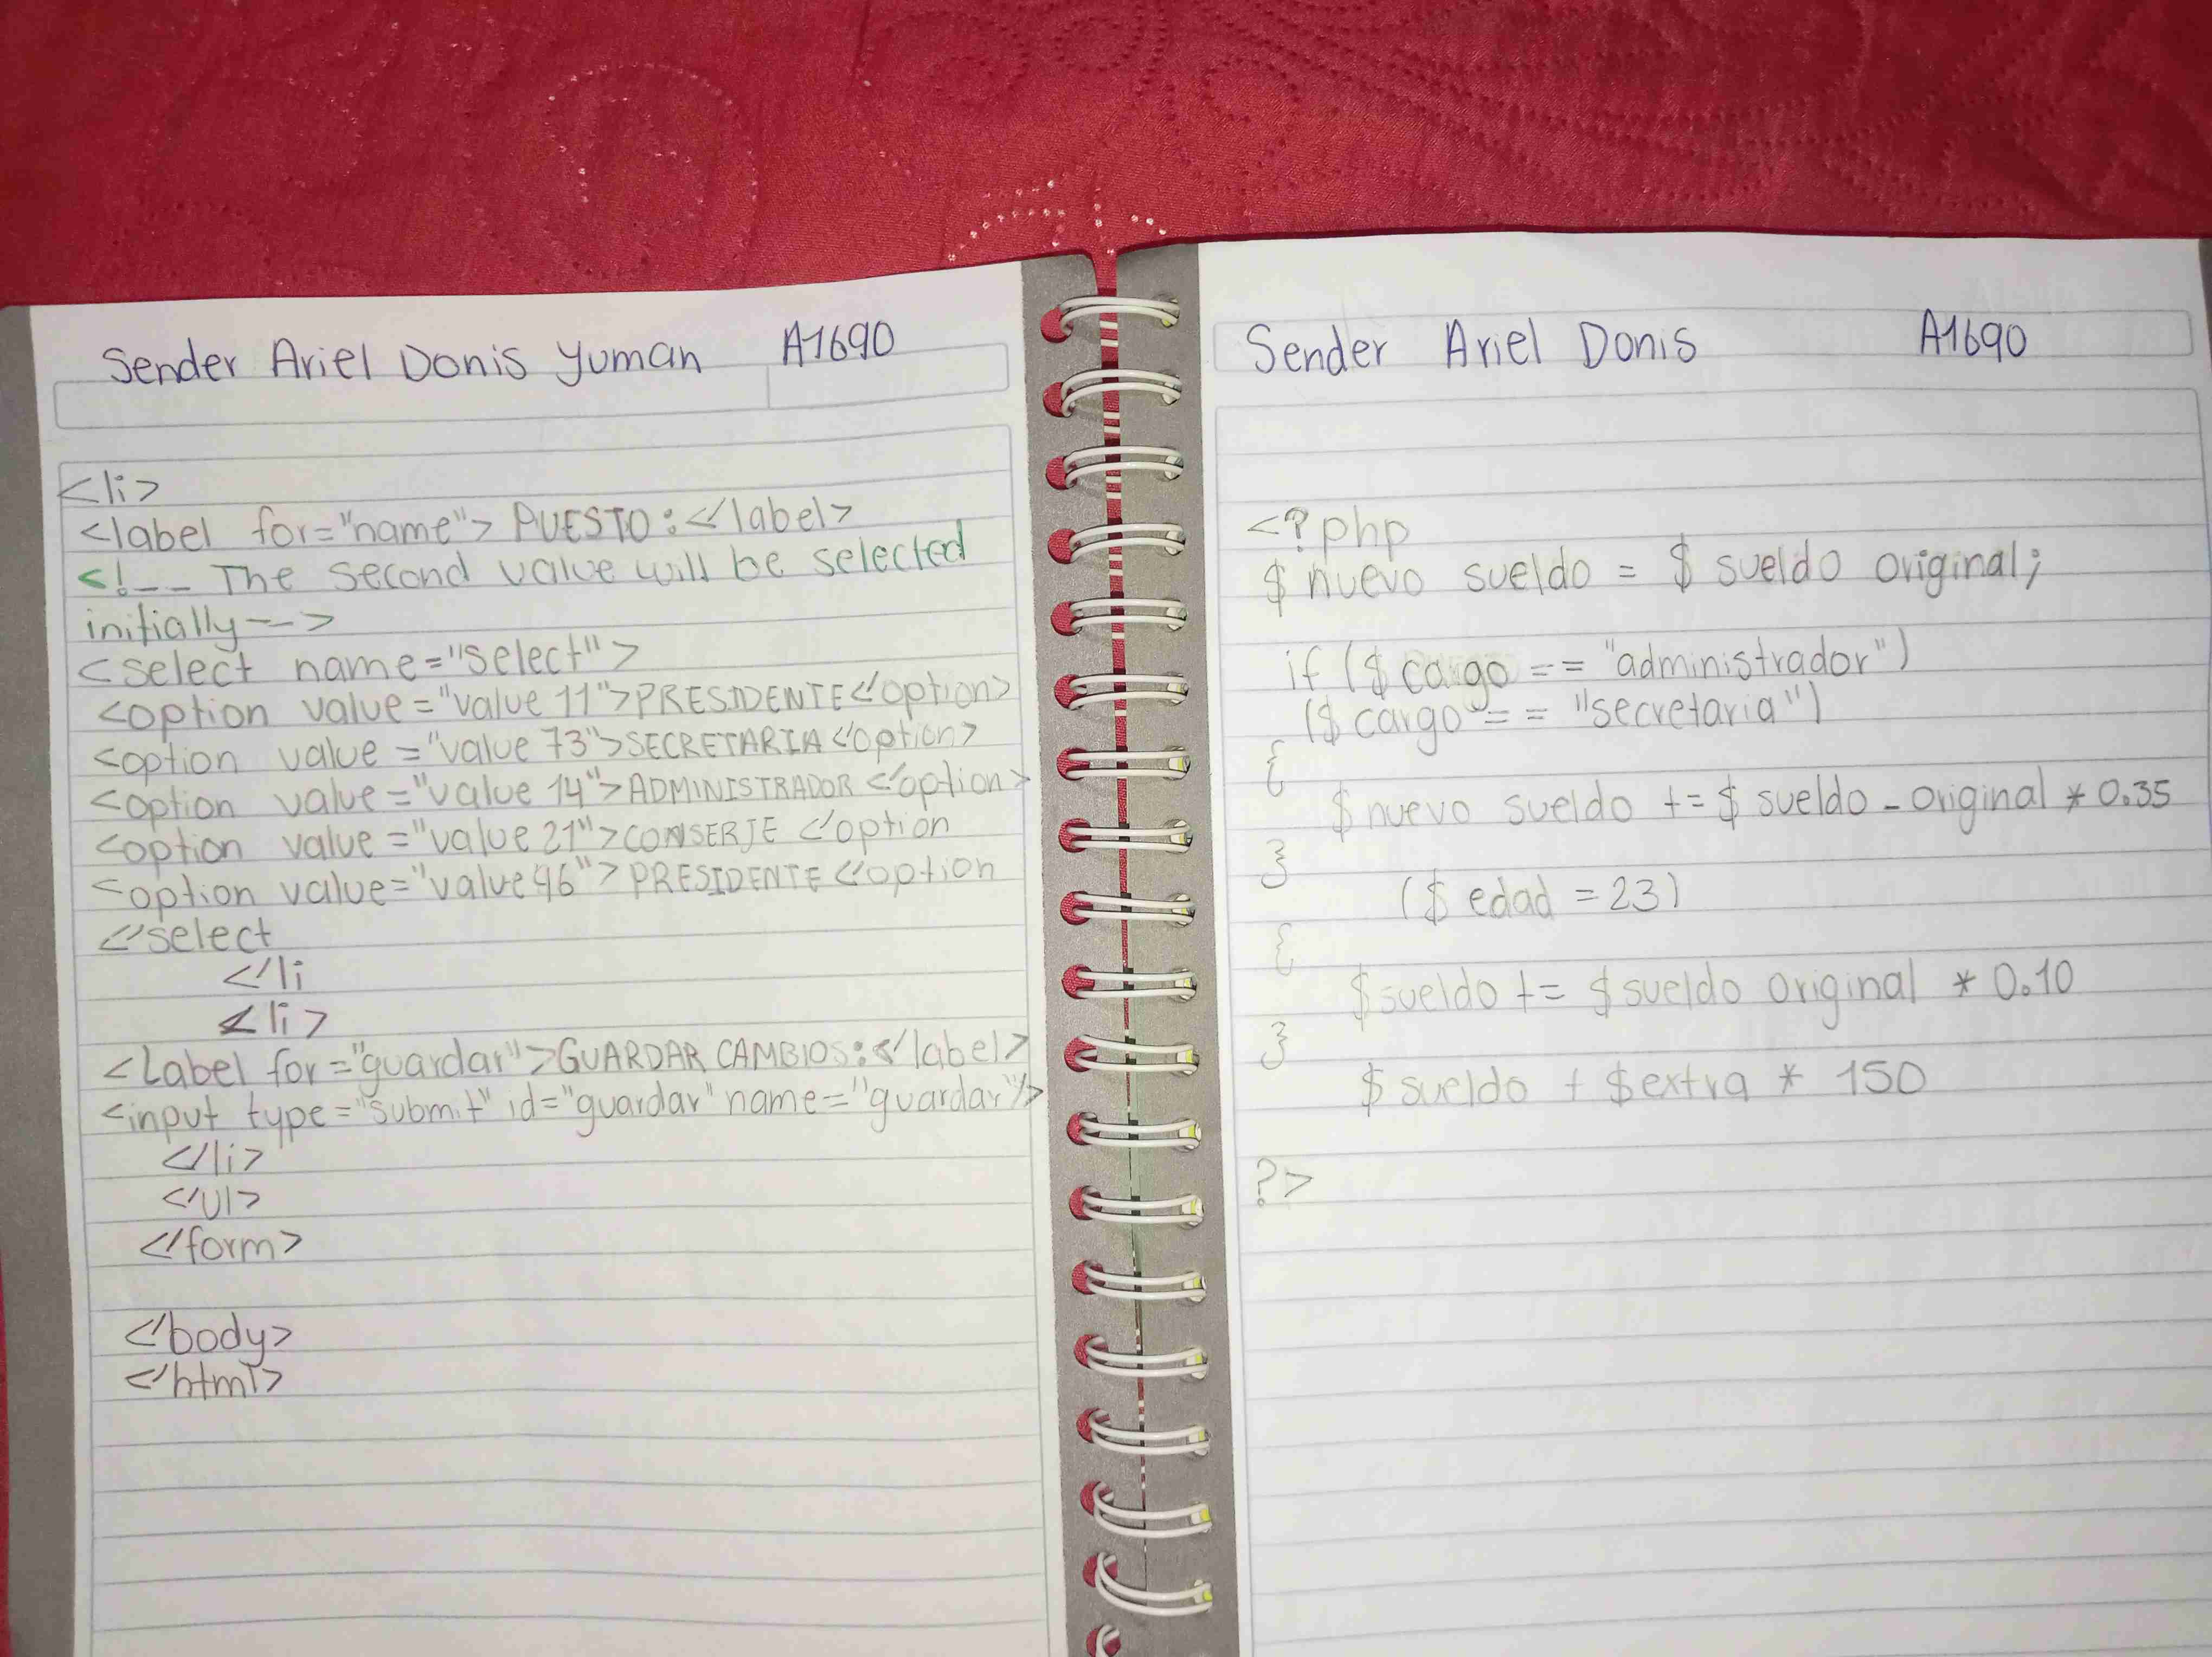 Sender Ariel Donis Yuman A1690
<li>
<label for="name"> PUESTO:</label>
<!-- The second value will be selected
initially-->
<select name="select">
<option value="value 11">PRESIDENTE</option>
<option value="value 73">SECRETARIA</option>
<option value="value 14">ADMINISTRADOR</option>
<option value="value 21">CONSERJE </option
<option value="value 46">PRESIDENTE </option
</select
</li
<li>
<Label for="guardar">GUARDAR CAMBIOS:</label>
<input type="submit" id="guardar" name="guardar"/>
</li>
</Ul>
</form>
</body>
</html>
Sender Ariel Donis A1690
<?php
$ nuevo sueldo = $ sueldo original;
if ($ cargo == "administrador")
($ cargo == "secretaria")
{
$ nuevo sueldo += $ sueldo - original * 0.35
}
($ edad = 23)
{
$ sueldo += $ sueldo original * 0.10
}
$ sueldo + $ extra * 150
?>